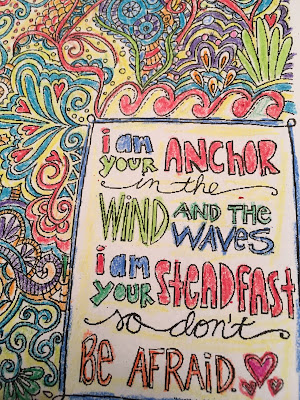 i am
your ANCHOR
in the
WIND AND THE
WAVES
i am
your STEADFAST
so don't
BE AFRAID.